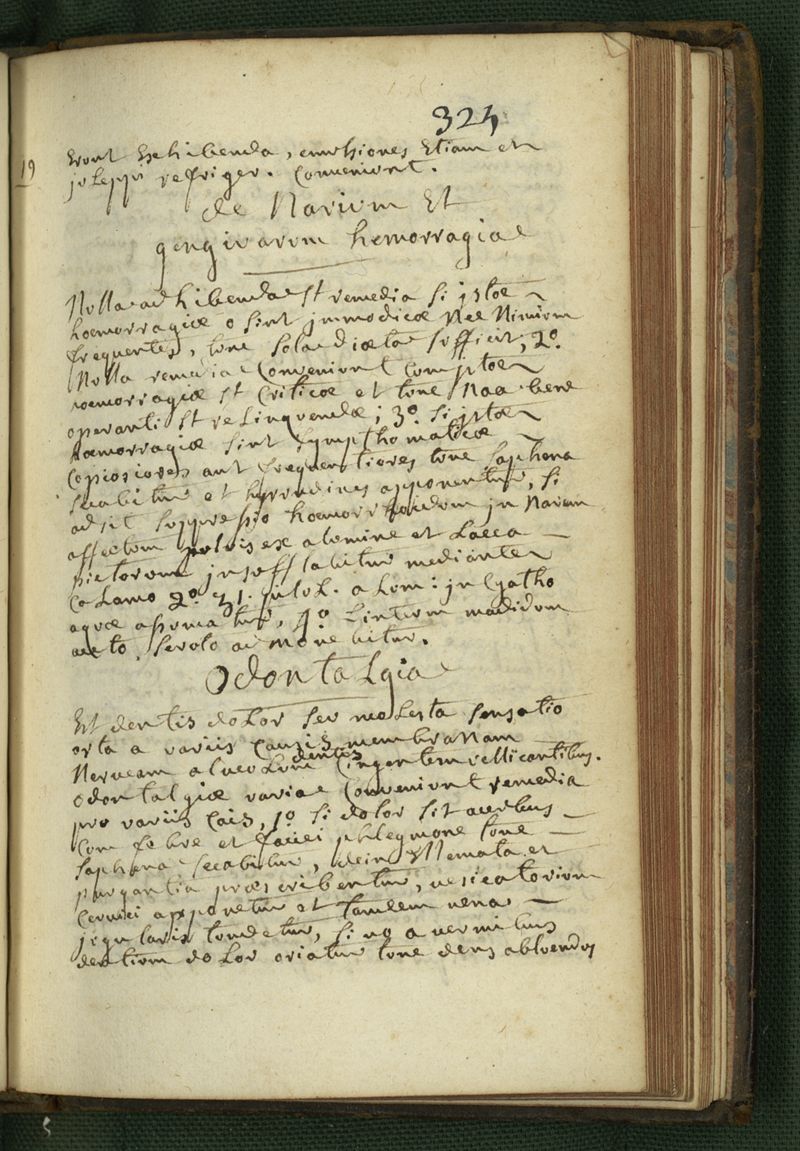 323
19
eront Exhibenda, emulsiones Etiam et
juleppi refriger. Conveniont.
de Narium Et
gengivarum hemorragia
Nulla adhibenda st remedia si jstæ
hæmorragiæ o sint jmmodicæ Nec Nimium
frequentes, tunc sola diæta sufficit; 2º.
Nulla remedia Conveniunt Cum jstæ
hæmorragiæ st Criticæ et tunc Naa bene
operanti st relinquendæ; 3º. si jstæ
hæmorragiæ sint symptomaticæ
Copiosiores aut frequentiores tunc saphena
secabitur et hyrudines apponentur, si
adsit suppressio hæmorrhoidum jn Narem
affectum pulvis ex alumine et Lacca
pictorum jnsufflabitur mediante
Calamo 2º. 31. alum: jn Cyatho
aquæ , 4º. Linteum madidum
aceto, scroto admovebitur.
Odontalgia
Est dentis dolor seu molesta sensatio
orta a variis Causis membranam
Nerveam alveolum dentes Cingentem vellicantibus.
odontalgiæ variæ Conveniunt remedia
pro variis Cais, 1º. si dolor sit acerbus
Cum febre et faciei phlegmone tunc
saphena secabitur, dein Enemata et
purgantia præscribentur, vesicatorium
Cervici apponetur et tandem vena
jugularis tundetur, si vo a vermibus
dentium dolor oriatur tunc dens abluendus